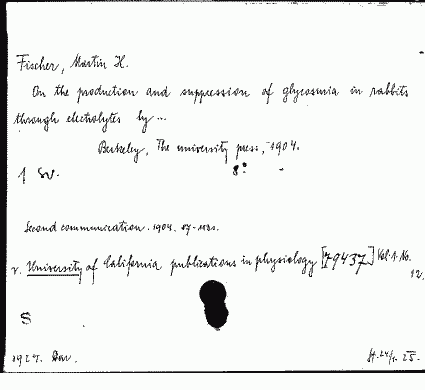 Fischer, Martin H.
On the production and suppression of glycosuria in rabbits
through electrolytes by ...
Berkeley, The university press, 1904.
1 8°
Second communication. 1904.
v. University of California publications in physiology [79437] Vol. 1. No.
12.
S
192